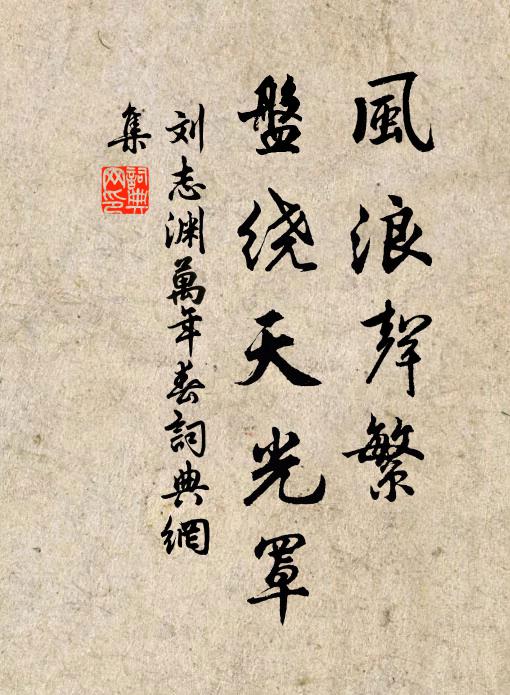 風浪聲繁
盤绕天光罩
刘志渊萬年春詞典網
集
詞典
网印